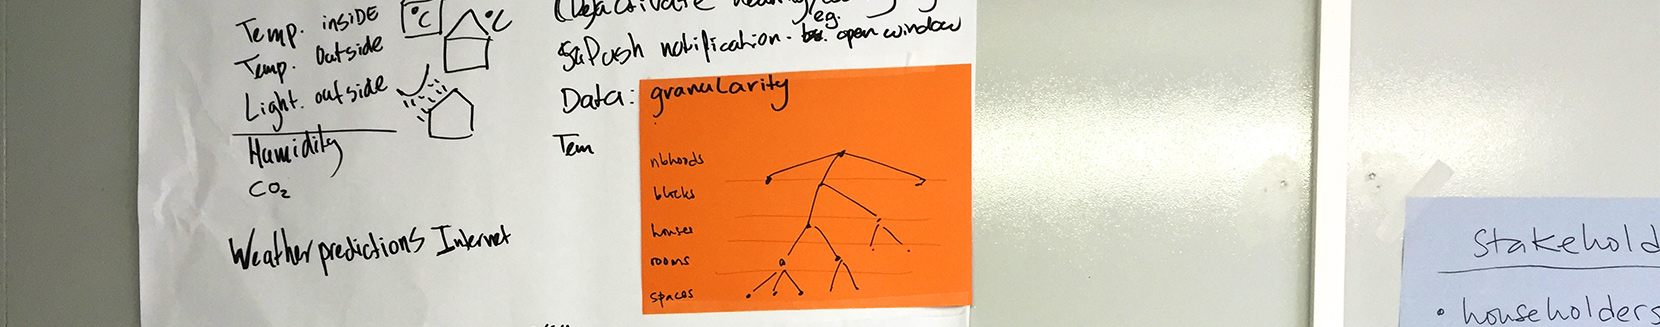 Temp. inside °C °C
Temp. Outside
Light. outside
Humidity
CO₂
Weather predictions Internet
(De)activate
eg.
Push notification - open window
Data: granularity
Tem
nbhoods
blocks
houses
rooms
spaces
Stakehold
• householders